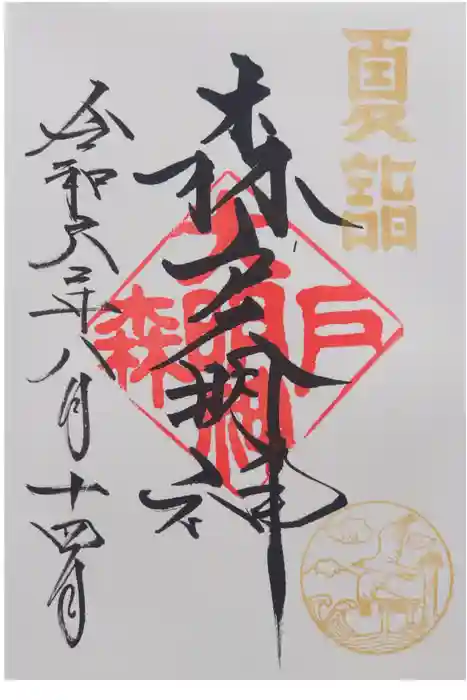 夏詣
森戸大明神
森戸
大明神
令和六年八月十四日